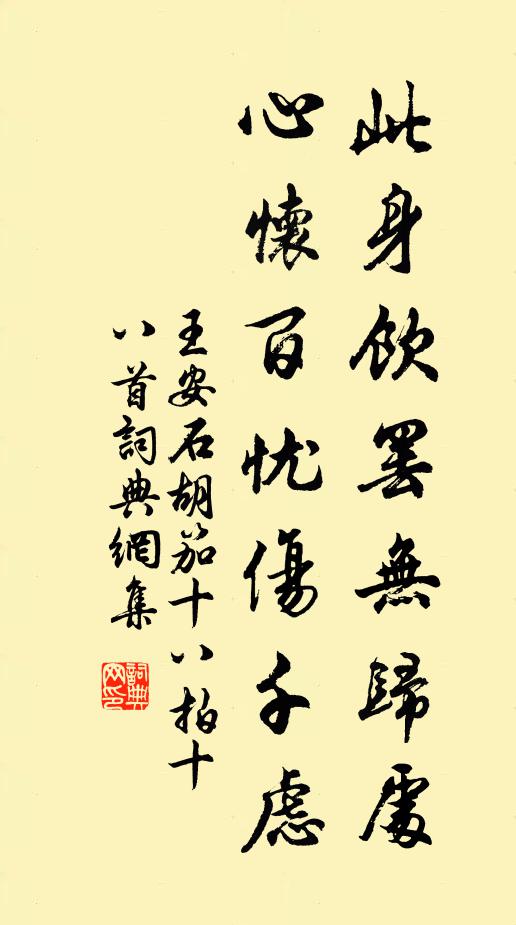 此身飲罷無歸處
心懷百忧傷千慮
王安石胡笳十八拍十
八首詞典網集
詞典
网印